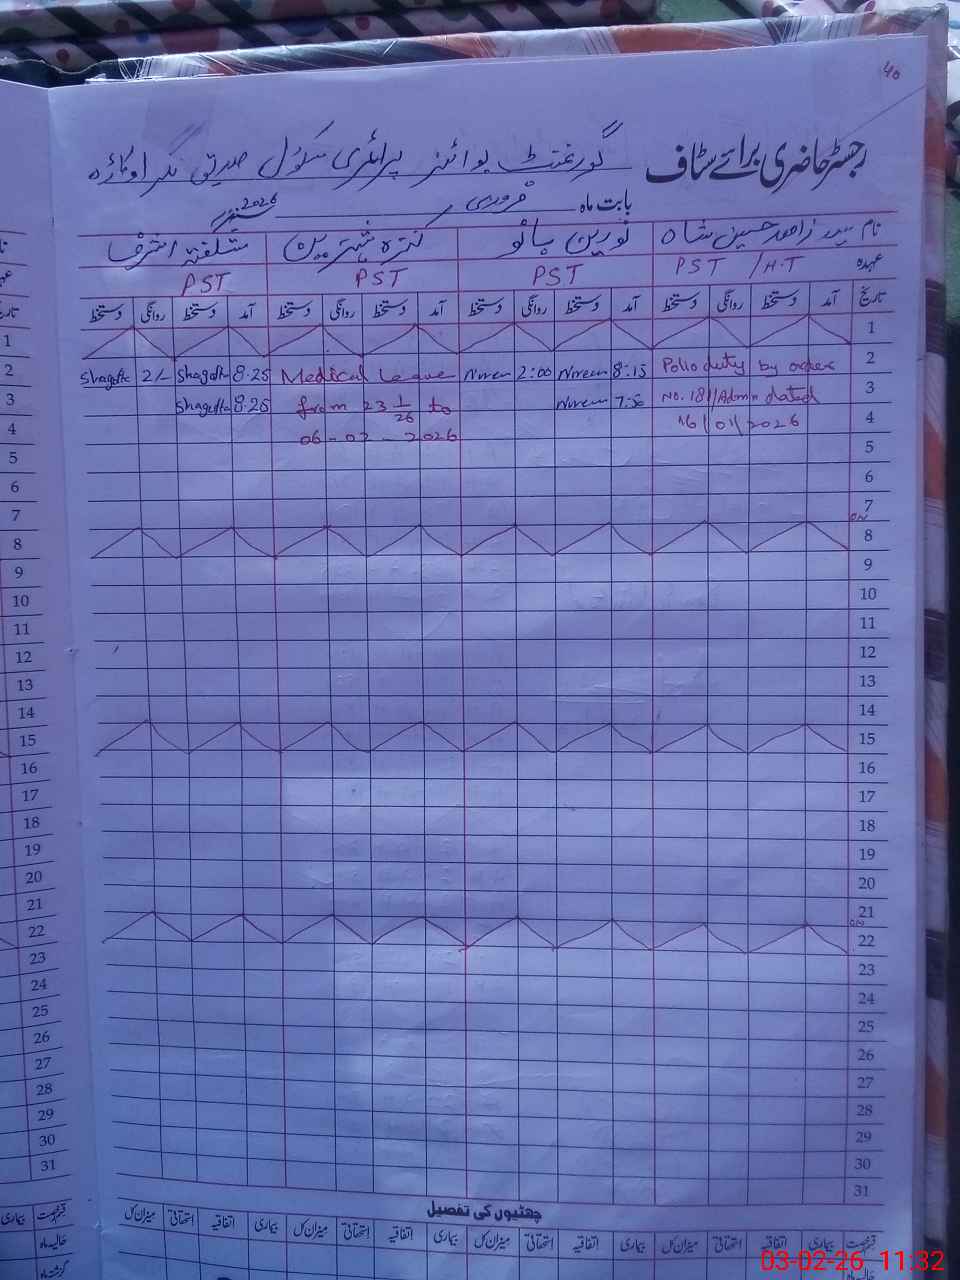 40
رجسٹر حاضری برائے سٹاف گورنمنٹ بوائز پرائمری سکول صدیق نگر اوکاڑہ
بابت ماہ فروری 2026
نام سید زاھد حسین شاہ نورین بانو کنزہ شگفتہ اشرف
عہدہ PST / H.T PST PST PST
تاریخ آمد دستخط روانگی دستخط آمد دستخط روانگی دستخط آمد دستخط روانگی دستخط آمد دستخط روانگی دستخط
1
2 Polio duty by order 8:15 Noreen 2:00 Noreen Medical Leave 8.25 Shagufta 2/- Shagufta
3 No. 181/Admn dated 7:50 Noreen from 23 1/26 to 8.25 Shagufta
4 16/01/2026 06-02-2026
5
6
7
8
9
10
11
12
13
14
15
16
17
18
19
20
21
22
23
24
25
26
27
28
29
30
31
چھٹیوں کی تفصیل
قسم رخصت بیماری اتفاقیہ استحقاقی میزان کل بیماری اتفاقیہ استحقاقی میزان کل بیماری اتفاقیہ استحقاقی میزان کل
03-02-26 11:32